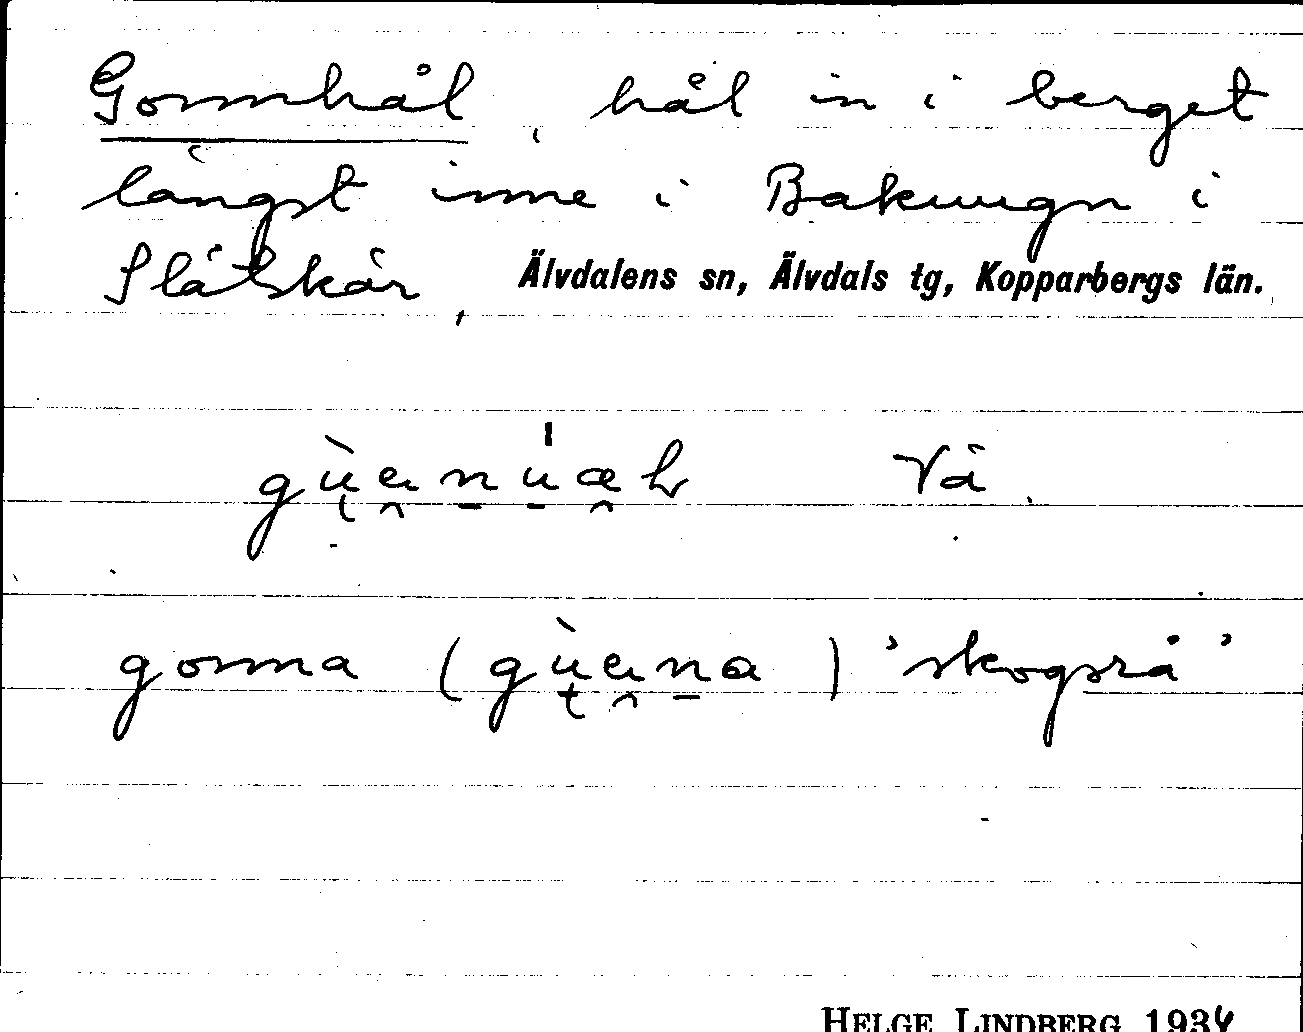 Gonnhål, hål in i berget
längst inne i Bakuugn i
Slåtskår, Älvdalens sn, Älvdals tg, Kopparbergs län.
Vä
gonna ( ) 'skogsrå'
HELGE LINDBERG 1934